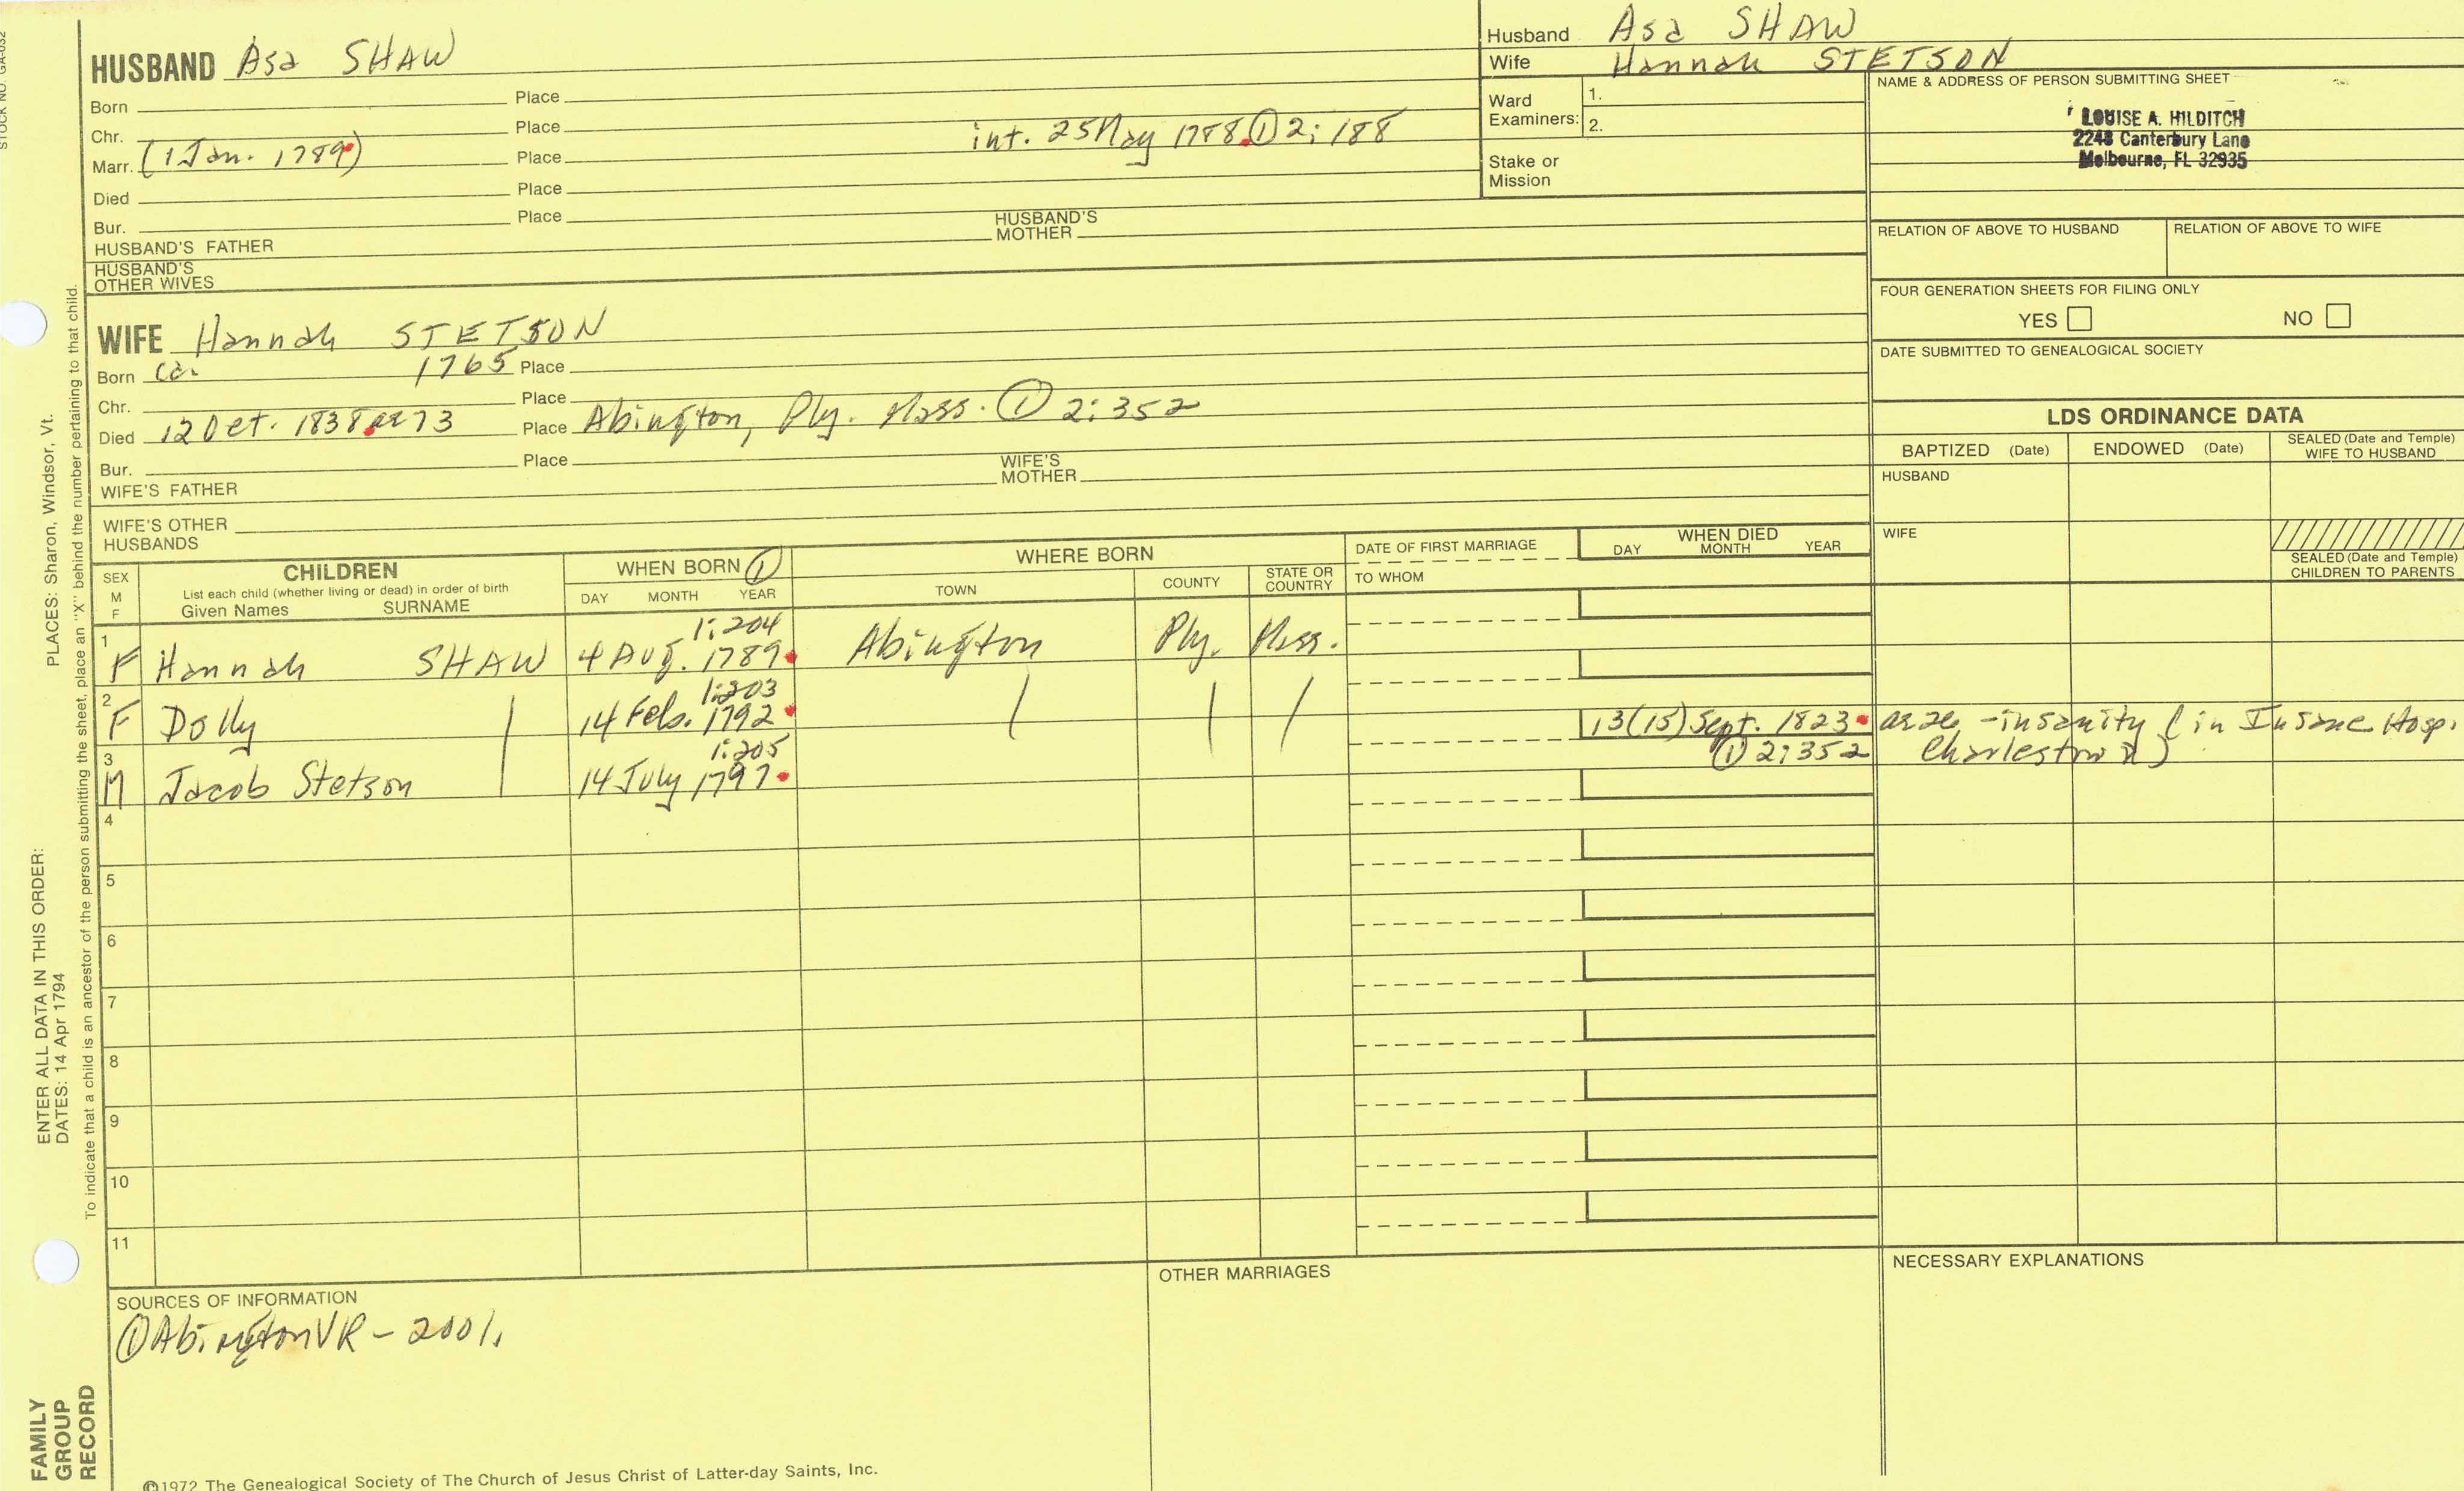 STOCK NO. GA-032
HUSBAND Asa SHAW
Born Place
Chr. Place
Marr. (1 Jan. 1789) Place int. 25 May 1788 ① 2:188
Died Place
Bur. Place
HUSBAND'S FATHER HUSBAND'S MOTHER
HUSBAND'S OTHER WIVES
Husband Asa SHAW
Wife Hannah STETSON
Ward Examiners: 1.
2.
Stake or Mission
NAME & ADDRESS OF PERSON SUBMITTING SHEET
LOUISE A. HILDITCH
2248 Canterbury Lane
Melbourne, FL 32935
RELATION OF ABOVE TO HUSBAND RELATION OF ABOVE TO WIFE
FOUR GENERATION SHEETS FOR FILING ONLY
YES NO
DATE SUBMITTED TO GENEALOGICAL SOCIETY
WIFE Hannah STETSON
Born ca. 1765 Place
Chr. Place
Died 12 Oct. 1838 ae 73 Place Abington, Ply. Mass. ① 2:352
Bur. Place
WIFE'S FATHER WIFE'S MOTHER
WIFE'S OTHER HUSBANDS
LDS ORDINANCE DATA
BAPTIZED (Date) ENDOWED (Date) SEALED (Date and Temple) WIFE TO HUSBAND
HUSBAND
WIFE
SEALED (Date and Temple) CHILDREN TO PARENTS
SEX M F
CHILDREN
List each child (whether living or dead) in order of birth
Given Names SURNAME
WHEN BORN ①
DAY MONTH YEAR
WHERE BORN
TOWN COUNTY STATE OR COUNTRY
DATE OF FIRST MARRIAGE
TO WHOM
WHEN DIED
DAY MONTH YEAR
1:204
1 F Hannah SHAW 4 Aug. 1789 Abington Ply. Mass.
1:203
2 F Dolly 14 Feb. 1792 13(15) Sept. 1823 - insanity (in Insane Hosp.
① 2:352
1:205
3 M Jacob Stetson 14 July 1797
4
5
6
7
8
9
10
11
SOURCES OF INFORMATION
① Abington VR - 2001.
OTHER MARRIAGES
NECESSARY EXPLANATIONS
©1972 The Genealogical Society of The Church of Jesus Christ of Latter-day Saints, Inc.
FAMILY GROUP RECORD
ENTER ALL DATA IN THIS ORDER:
DATES: 14 Apr 1794
PLACES: Sharon, Windsor, Vt.
To indicate that a child is an ancestor of the person submitting the sheet, place an "X" behind the number pertaining to that child.